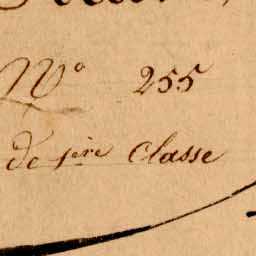 Nº 255
de 1ère Classe